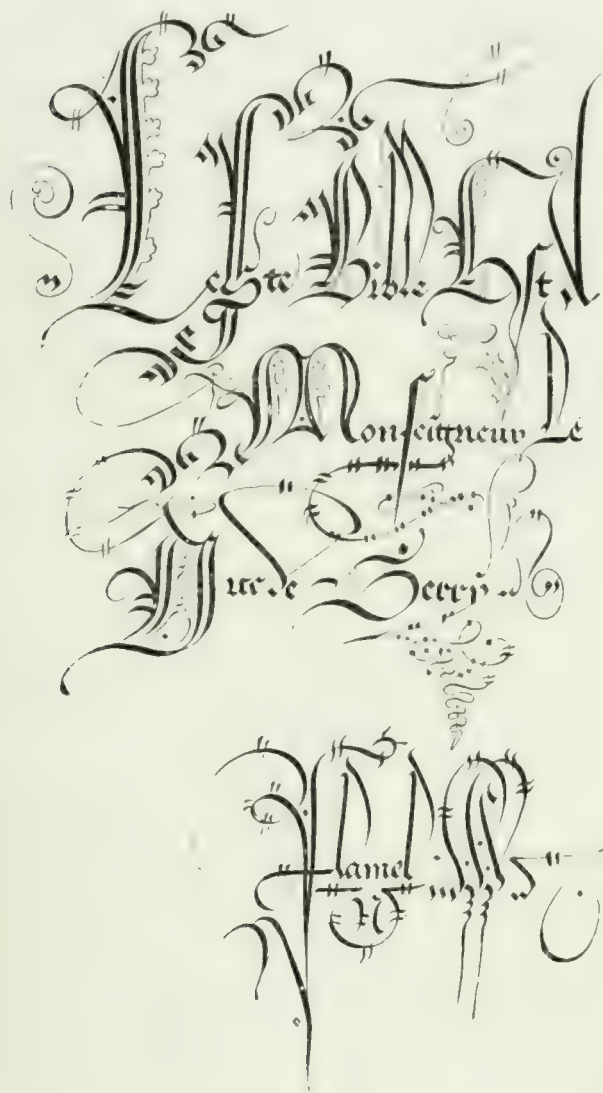 Ceste Bible Est A
Monseigneur Le
Duc de Berry
flamel